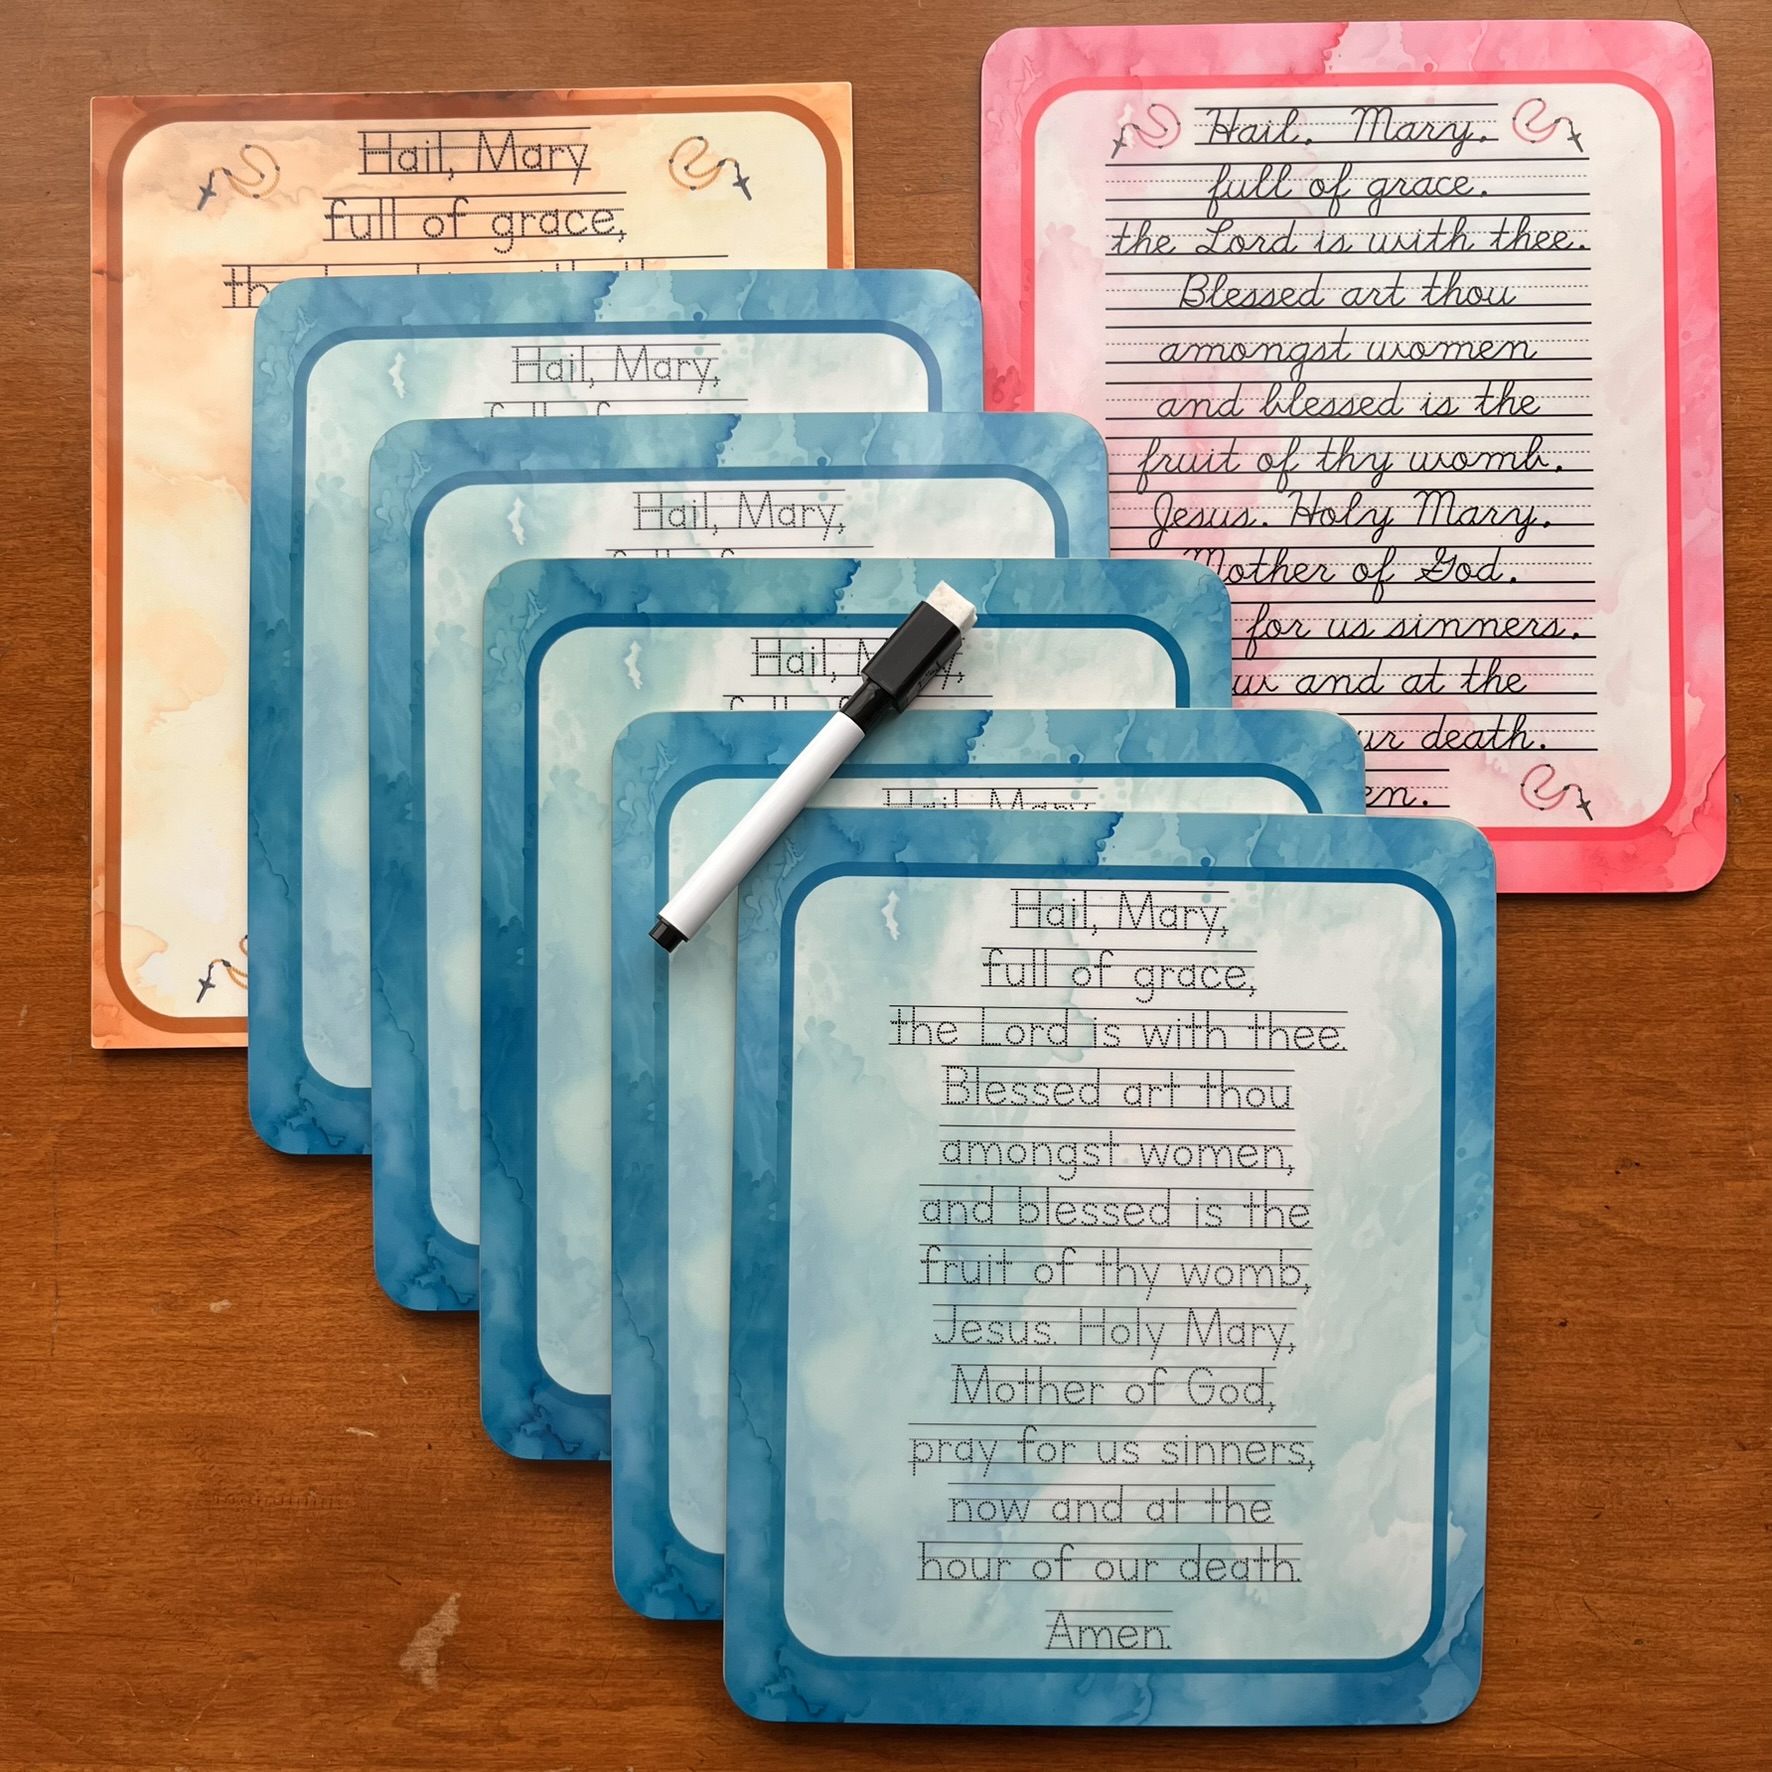 Hail, Mary
full of grace,
Hail, Mary,
full of grace.
the Lord is with thee.
Blessed art thou
amongst women
and blessed is the
fruit of thy womb.
Jesus. Holy Mary.
Mother of God.
for us sinners.
and at the
death.
Hail, Mary,
Hail, Mary,
Hail,
Hail, Mary,
Hail, Mary,
full of grace,
the Lord is with thee.
Blessed art thou
amongst women,
and blessed is the
fruit of thy womb,
Jesus. Holy Mary,
Mother of God,
pray for us sinners,
now and at the
hour of our death.
Amen.